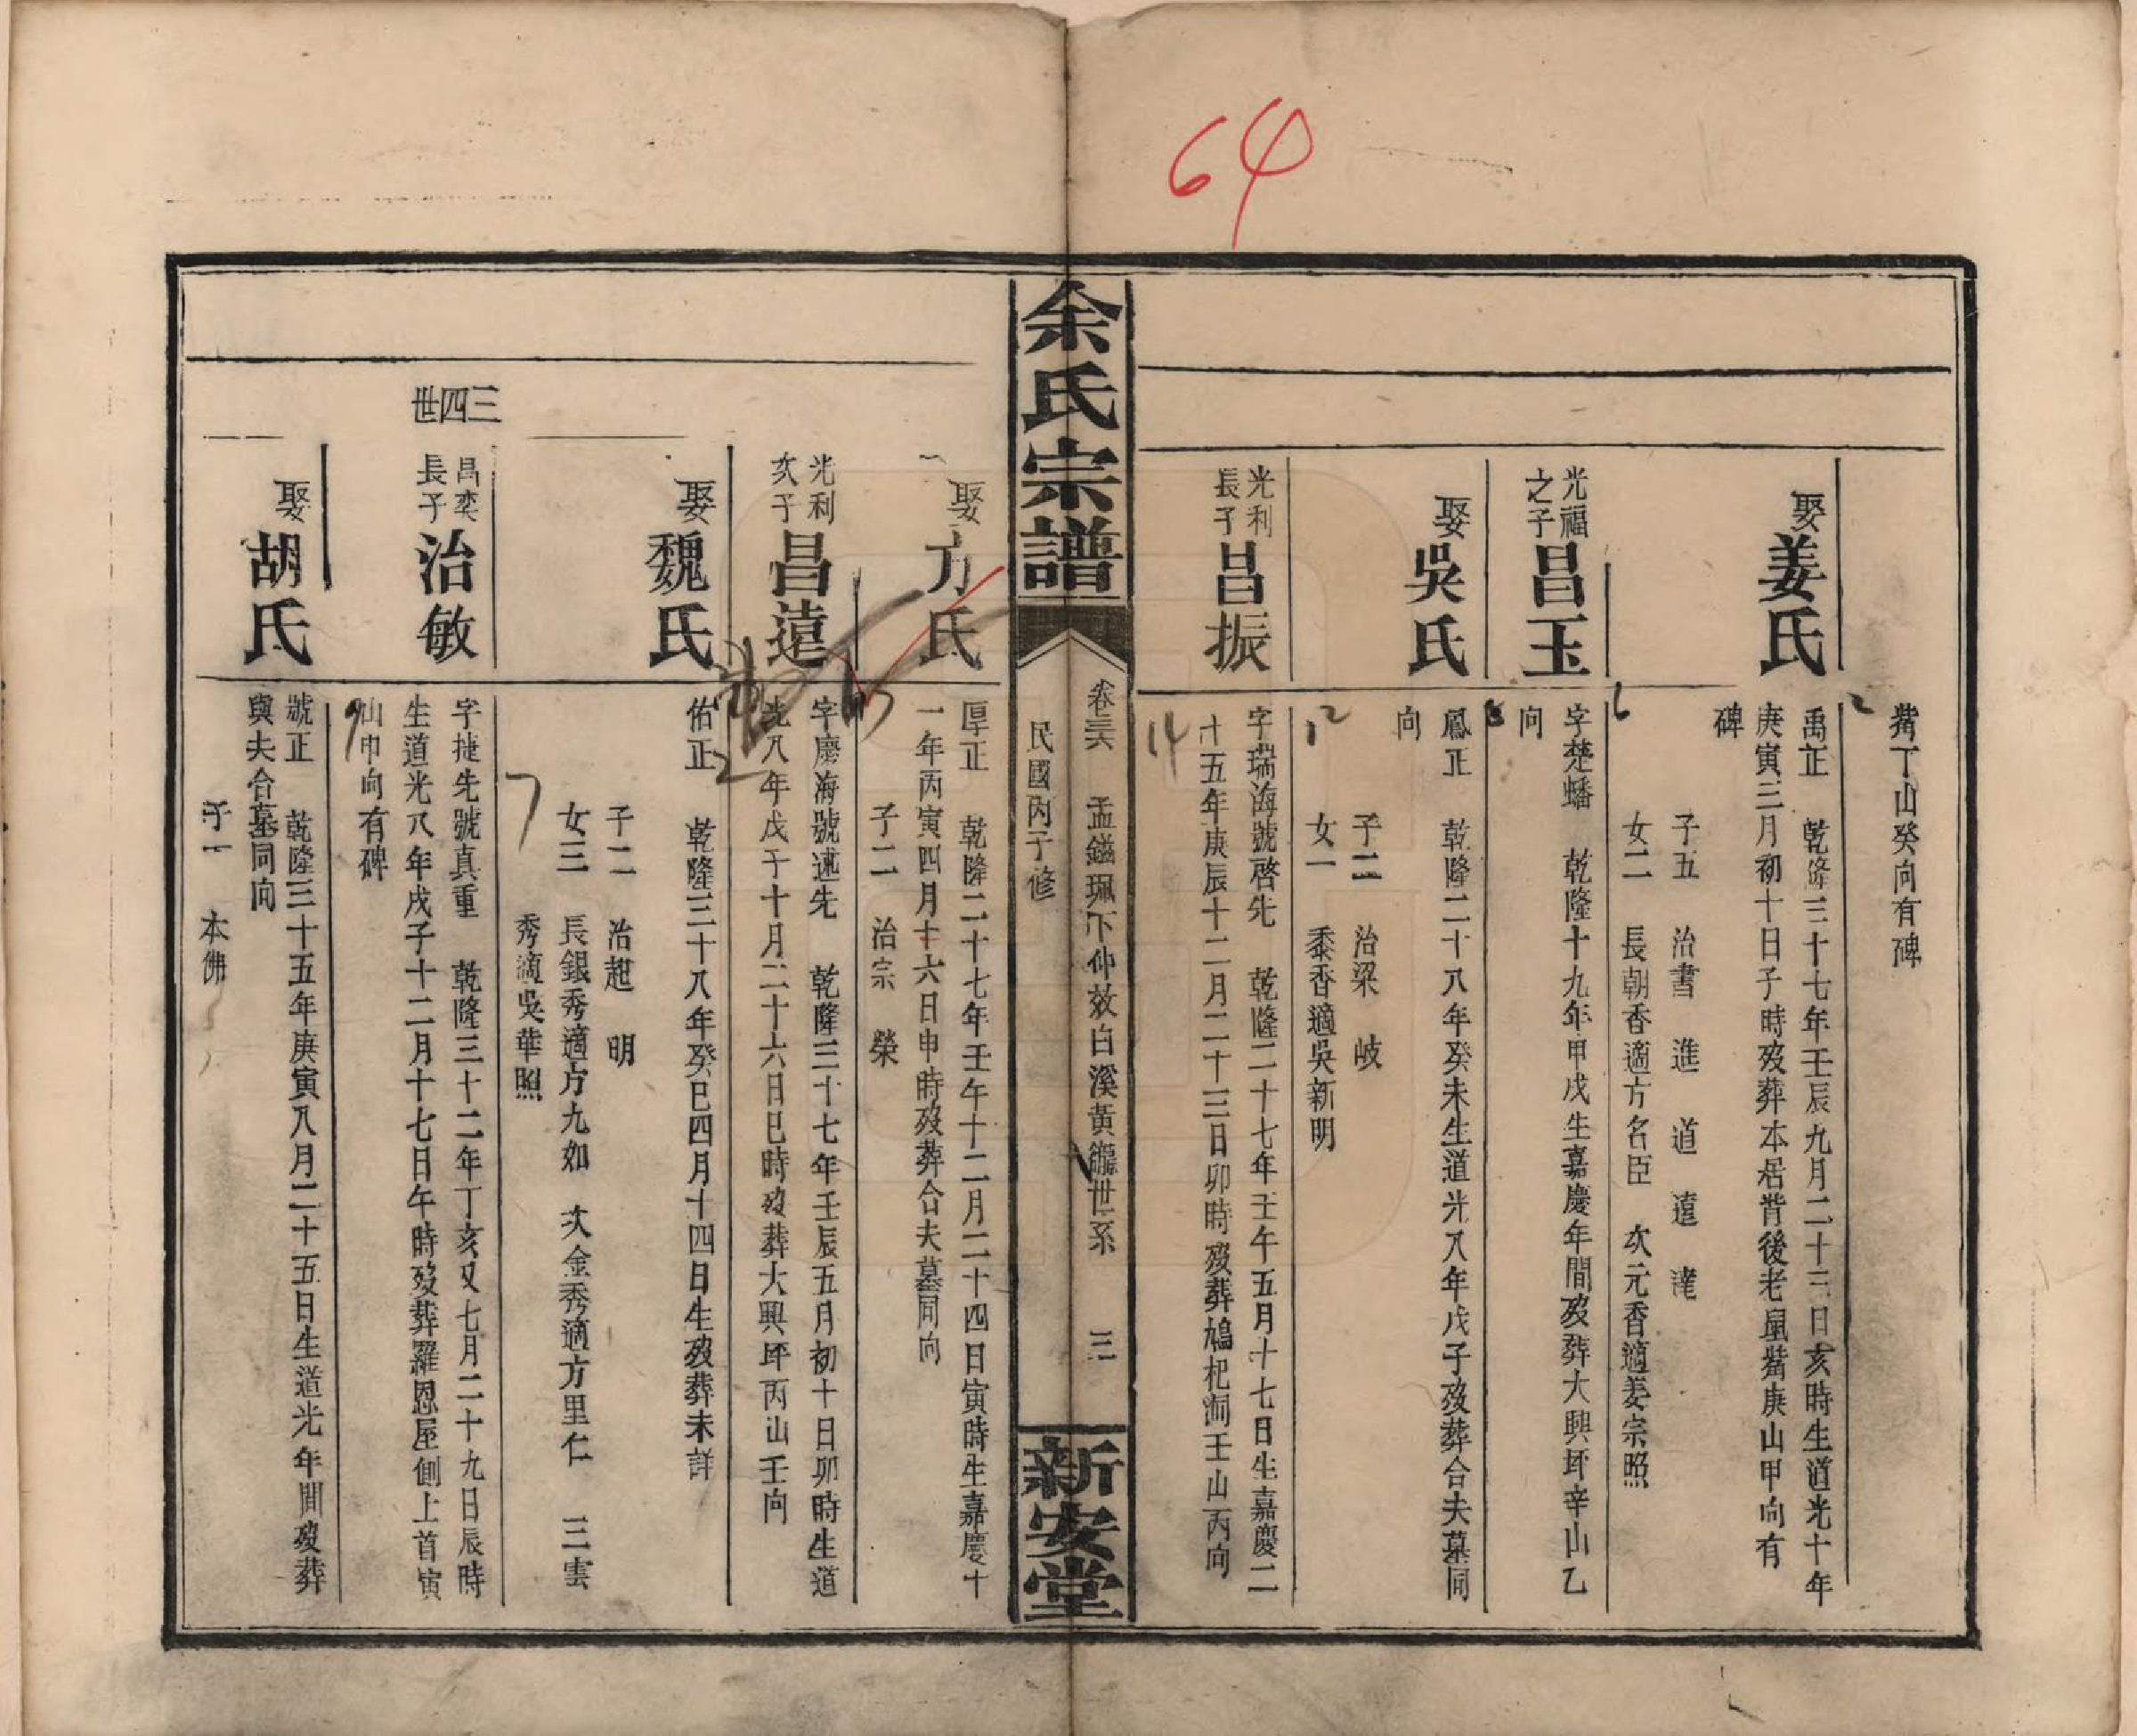 64
嘴丁山癸向有碑
娶
姜氏
禹正 乾隆三十七年壬辰九月二十三日亥時生道光十年
庚寅三月初十日子時歿葬本居背後老鼠嘴庚山甲向有
碑
子五 治書 進 道 遠 達
女二 長朝香適方名臣 次元香適姜宗照
光福
之子
昌玉
字楚蟠 乾隆十九年甲戌生嘉慶年間歿葬大興坪辛山乙
向
娶
吳氏
鳳正 乾隆二十八年癸未生道光八年戊子歿葬合夫墓同
向
子二 治梁 岐
女一 黍香適吳新明
光利
長子
昌振
字瑞海號啓先 乾隆二十七年壬午五月十七日生嘉慶二
十五年庚辰十二月二十三日卯時歿葬鳩杷洞壬山丙向
余氏宗譜
卷三六 孟鎰珮下仲效白溪黃龍世系 三
民國丙子修
新安堂
娶
方氏
厚正 乾隆二十七年壬午十二月二十四日寅時生嘉慶十
一年丙寅四月十六日申時歿葬合夫墓同向
子二 治宗 榮
光利
次子
昌遠
字慶海號述先 乾隆三十七年壬辰五月初十日卯時生道
光八年戊子十月二十六日巳時歿葬大興坪丙山壬向
娶
魏氏
佑正 乾隆三十八年癸巳四月十四日生歿葬未詳
子二 治起 明
女三 長銀秀適方九如 次金秀適方里仁 三雲
秀適吳華照
三四世
昌奕
長子
治敏
字捷先號真重 乾隆三十二年丁亥又七月二十九日辰時
生道光八年戊子十二月十七日午時歿葬羅恩屋側上首寅
山申向有碑
娶
胡氏
號正 乾隆三十五年庚寅八月二十五日生道光年間歿葬
與夫合墓同向
子一 本佛